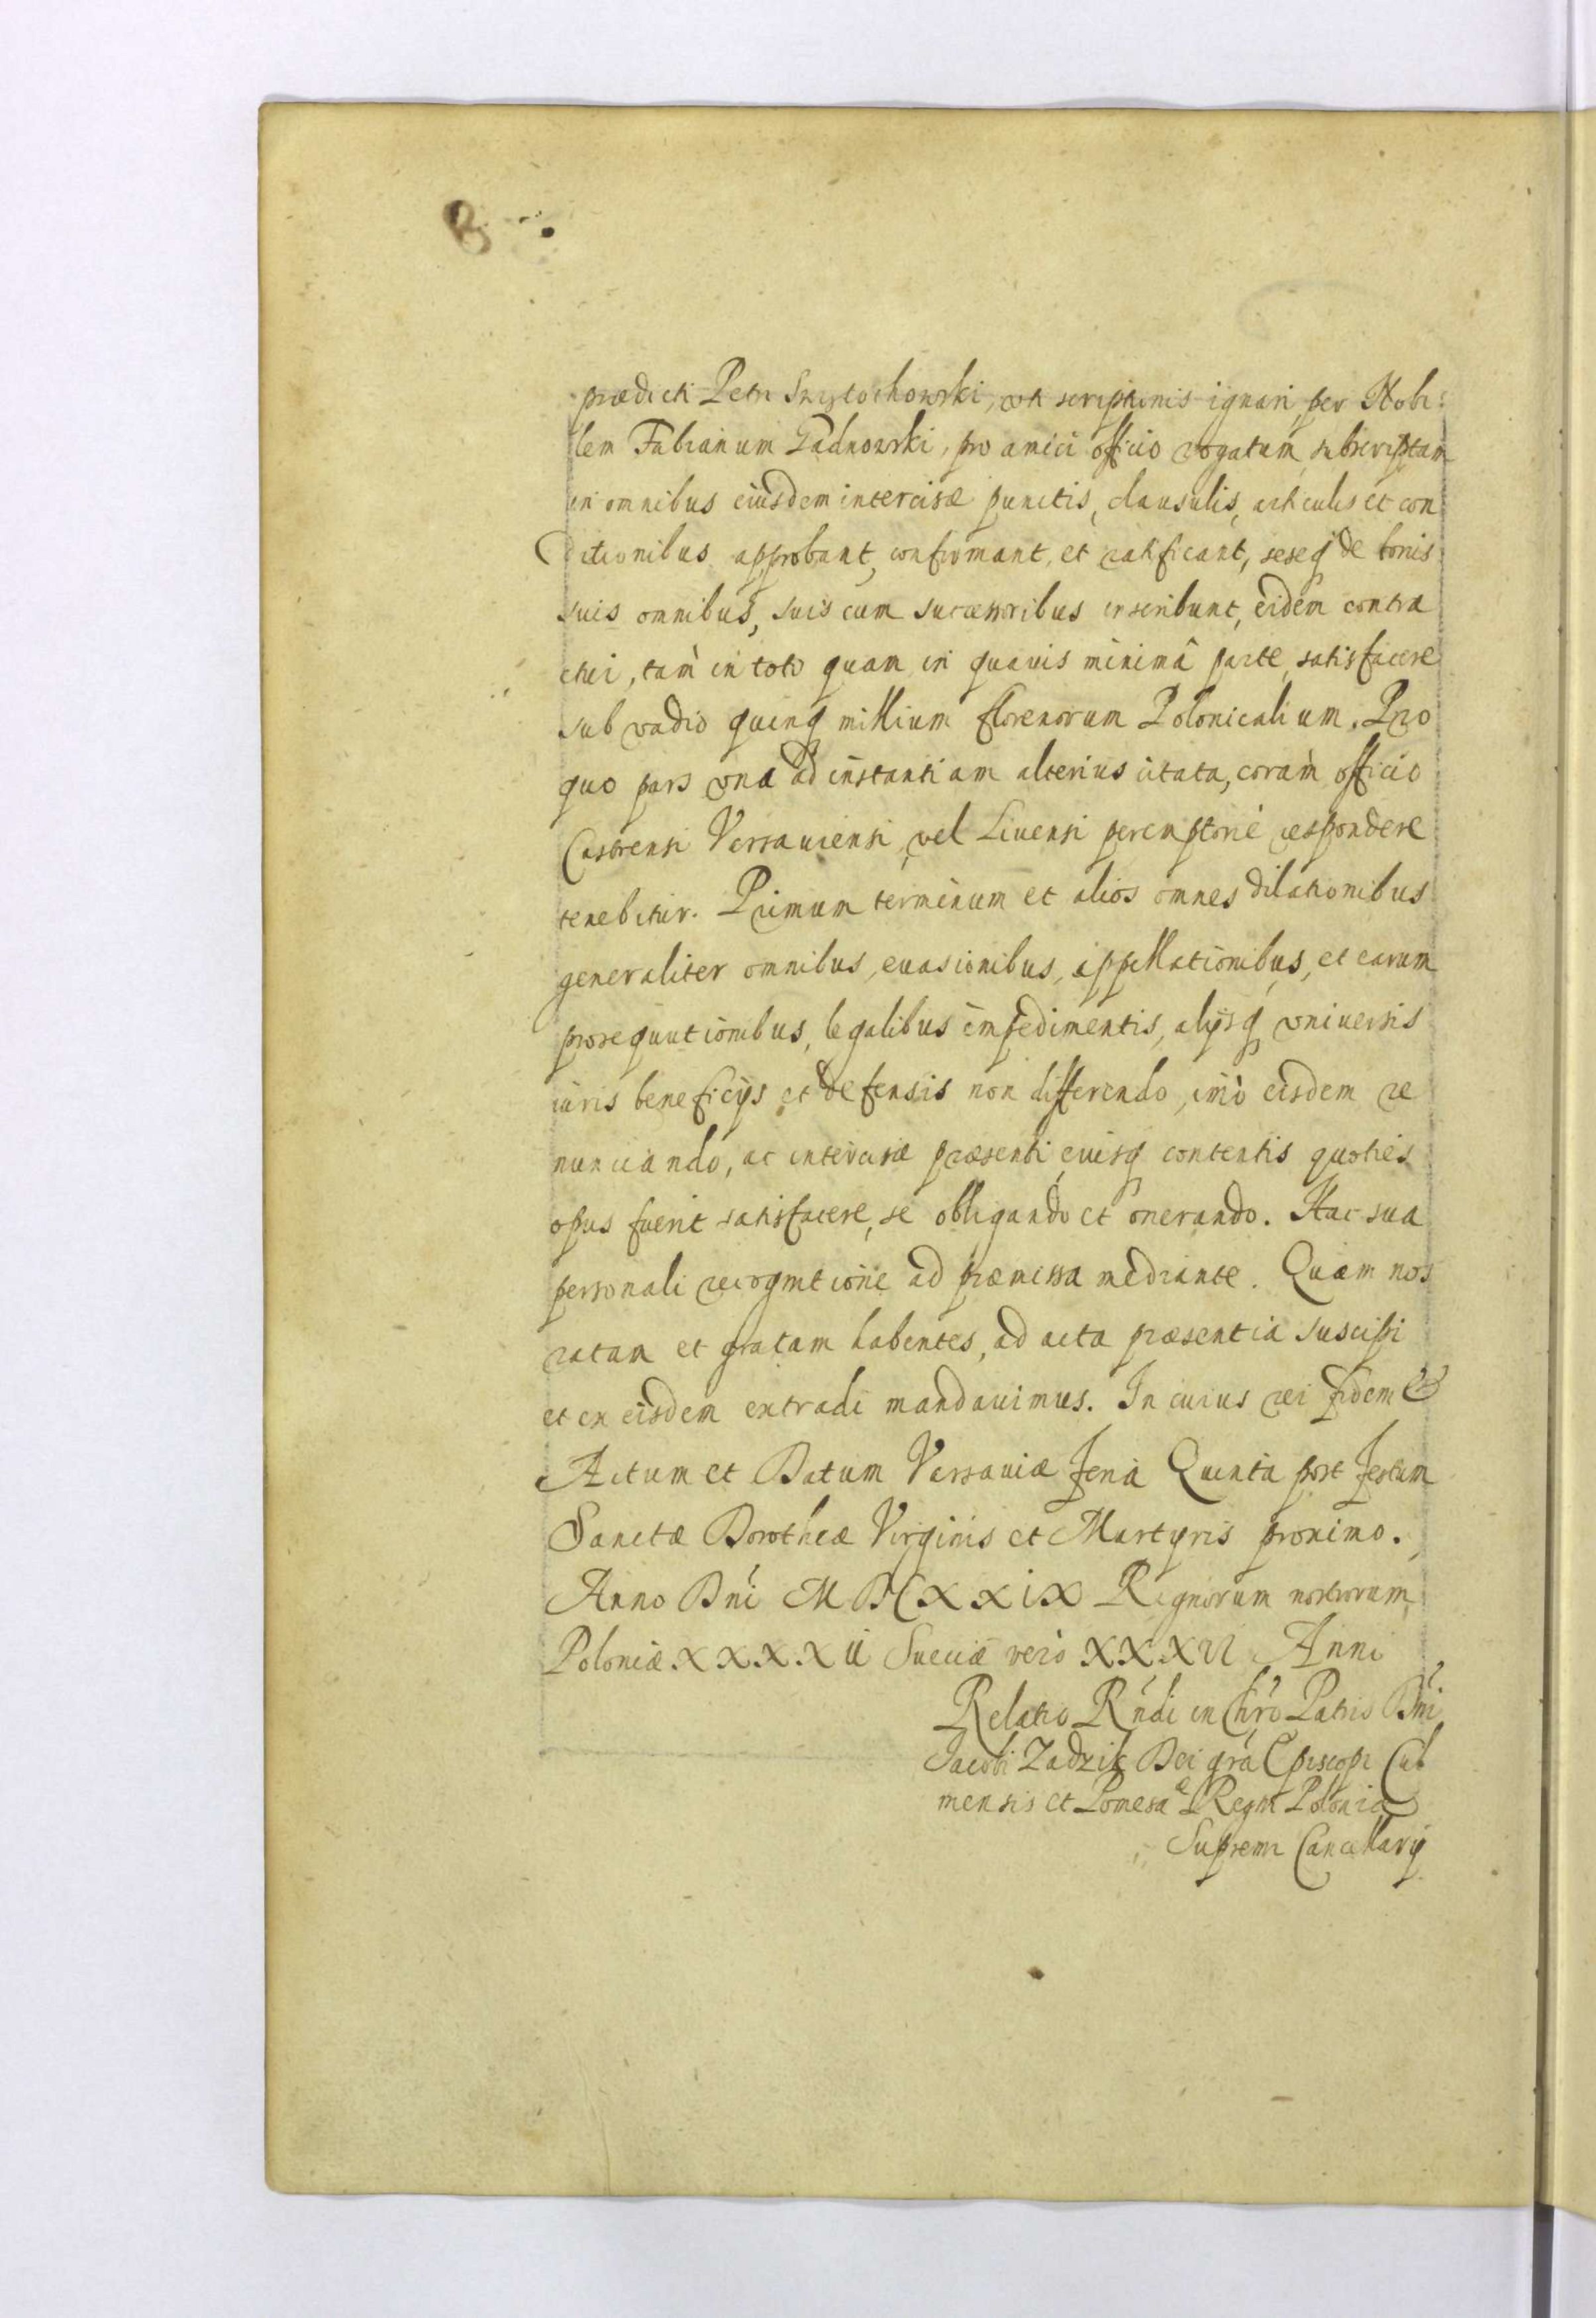 B
prædicti Petri Szystochowski, uti scriptionis ignari, per Nobi:
lem Fabianum Gadnowski, pro amici officio rogatum, subscriptam
in omnibus eiusdem intercisæ punctis, clausulis, articulis et con
ditionibus approbant, confirmant, et ratificant, seseq de bonis
suis omnibus, suis cum successoribus inscribunt, eidem contra
ctui, tam in toto quam in quavis minimâ parte, satisfacere
sub vadio quinq millium florenorum Polonicalium. Pro
quo pars una ad instantiam alterius citata, coràm officio
Castrensi Varsauiensi, vel Liuensi peremptoriè respondere
tenebitur. Primum terminum et alios omnes dilationibus
generaliter omnibus, euasionibus, appellationibus, et earum
prosequutionibus, legalibus impedimentis, alijsq uniuersis
iuris beneficijs et defensis non differendo, imò eisdem re
nunciando, ac intercisæ præsenti, eiusq contentis quoties
opus fuerit satisfacere, se obligando et onerando. Hac sua
personali recognitione ad præmissa mediante. Quam nos
ratam et gratam habentes, ad acta præsentia suscipi
et ex eisdem extradi mandauimus. In cuius rei fidem &
Actum et Datum Varsauiæ feria Quinta post festum
Sanctæ Dorotheæ Virginis et Martyris proximo.
Anno Dni MDCXXIX Regnorum nostrorum
Poloniæ XXXXII Sueciæ verò XXXVI Anni
Relatio Rndi in Chro Patris Dni
Jacobi Zadzik Dei gra Episcopi Cul
mensis et Pomesa Regni Poloniæ
Supremi Cancellarij